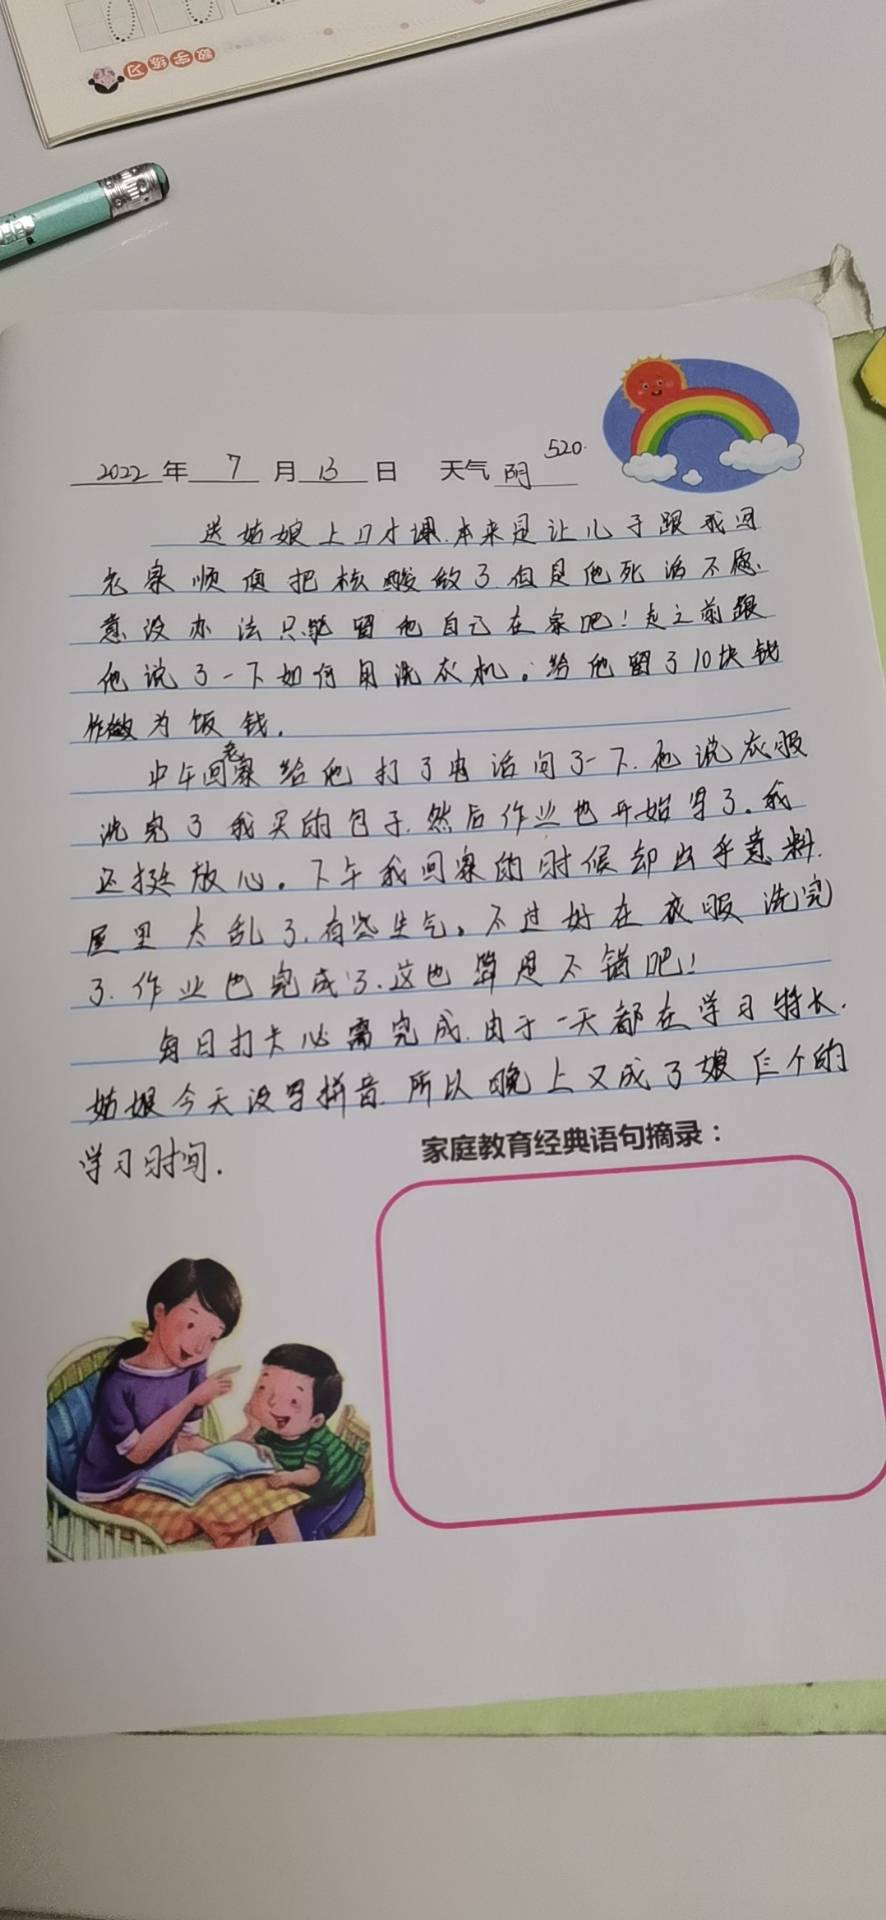 数字练习
520.
2022 年 7 月 13 日 天气 阴
送姑娘上口才课.本来是让儿子跟我回
老家顺便把核酸做了.但是他死活不愿
意没办法只能留他自己在家吧!走之前跟
他说了一下如何用洗衣机。给他留了10块钱
作做为饭钱.
中午回老家给他打了电话问了一下.他说衣服
洗完了我买的包子.然后作业也开始写了。我
还挺放心。下午我回家的时候却出乎意料.
屋里太乱了.有些生气。不过好在衣服洗完
了.作业也完成了.这也算是不错吧!
每日打卡必需完成.由于一天都在学习特长.
姑娘今天没写拼音.所以晚上又成了娘仨个的
学习时间.
家庭教育经典语句摘录：